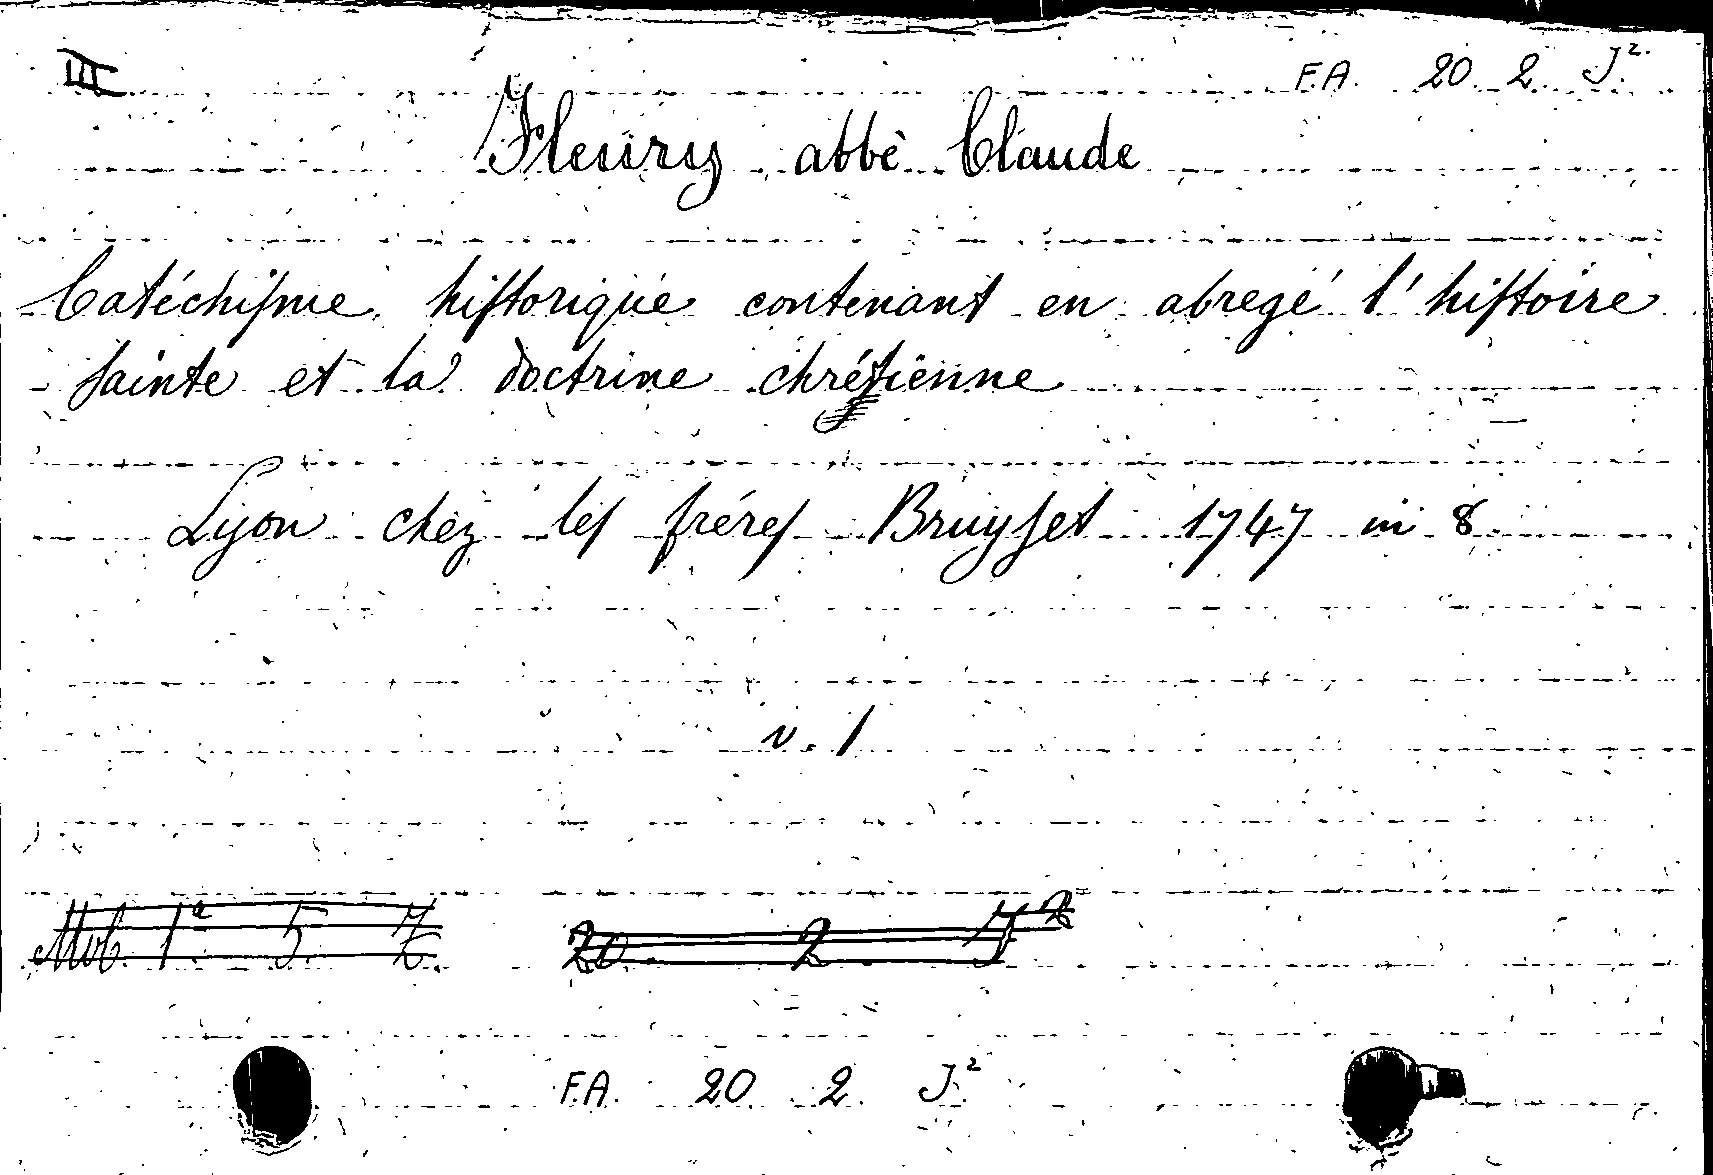 III F.A. 20 2 J².
Fleury abbé Claude
Catéchisme historique contenant en abregé l'histoire
sainte et la doctrine chrétienne
Lyon chez les fréres Bruyset 1747 in 8.
v. 1
Mob. 1ª 5. Z. 20. 2. J²
F.A. 20 2. J²